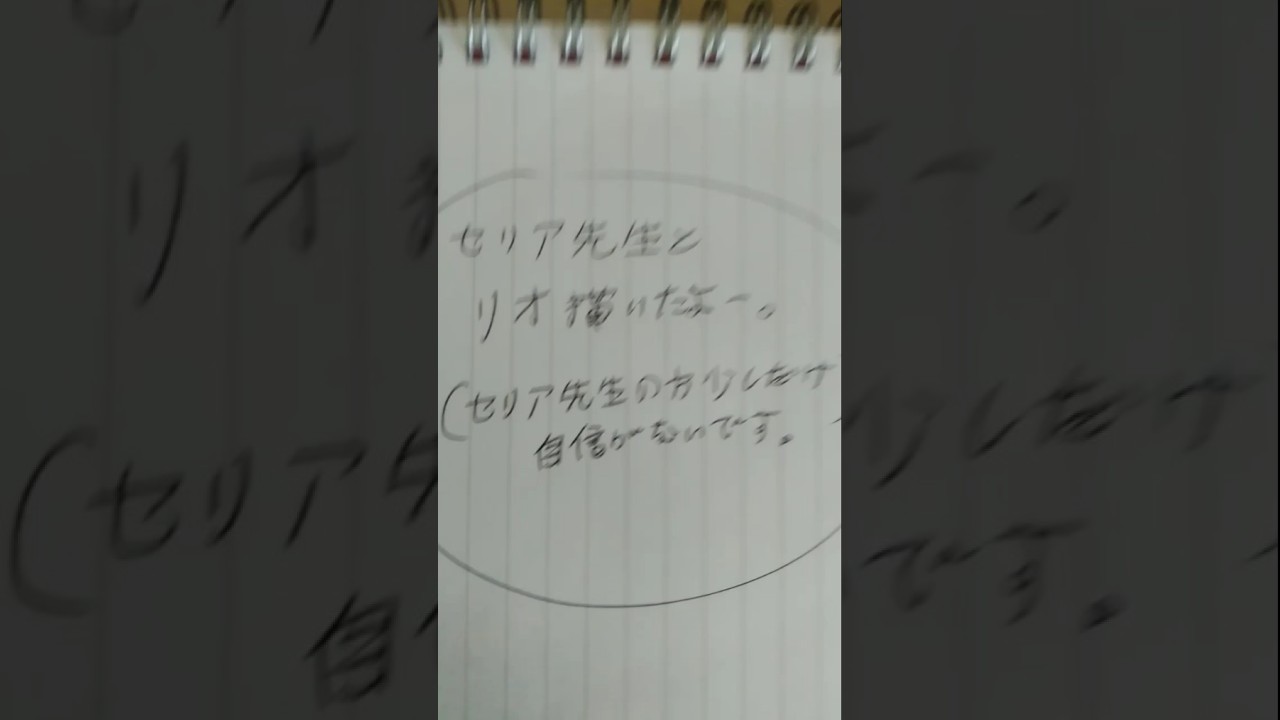 セリア先生と
リオ描いたよー。
(セリア先生の方少しだけ
自信がないです。